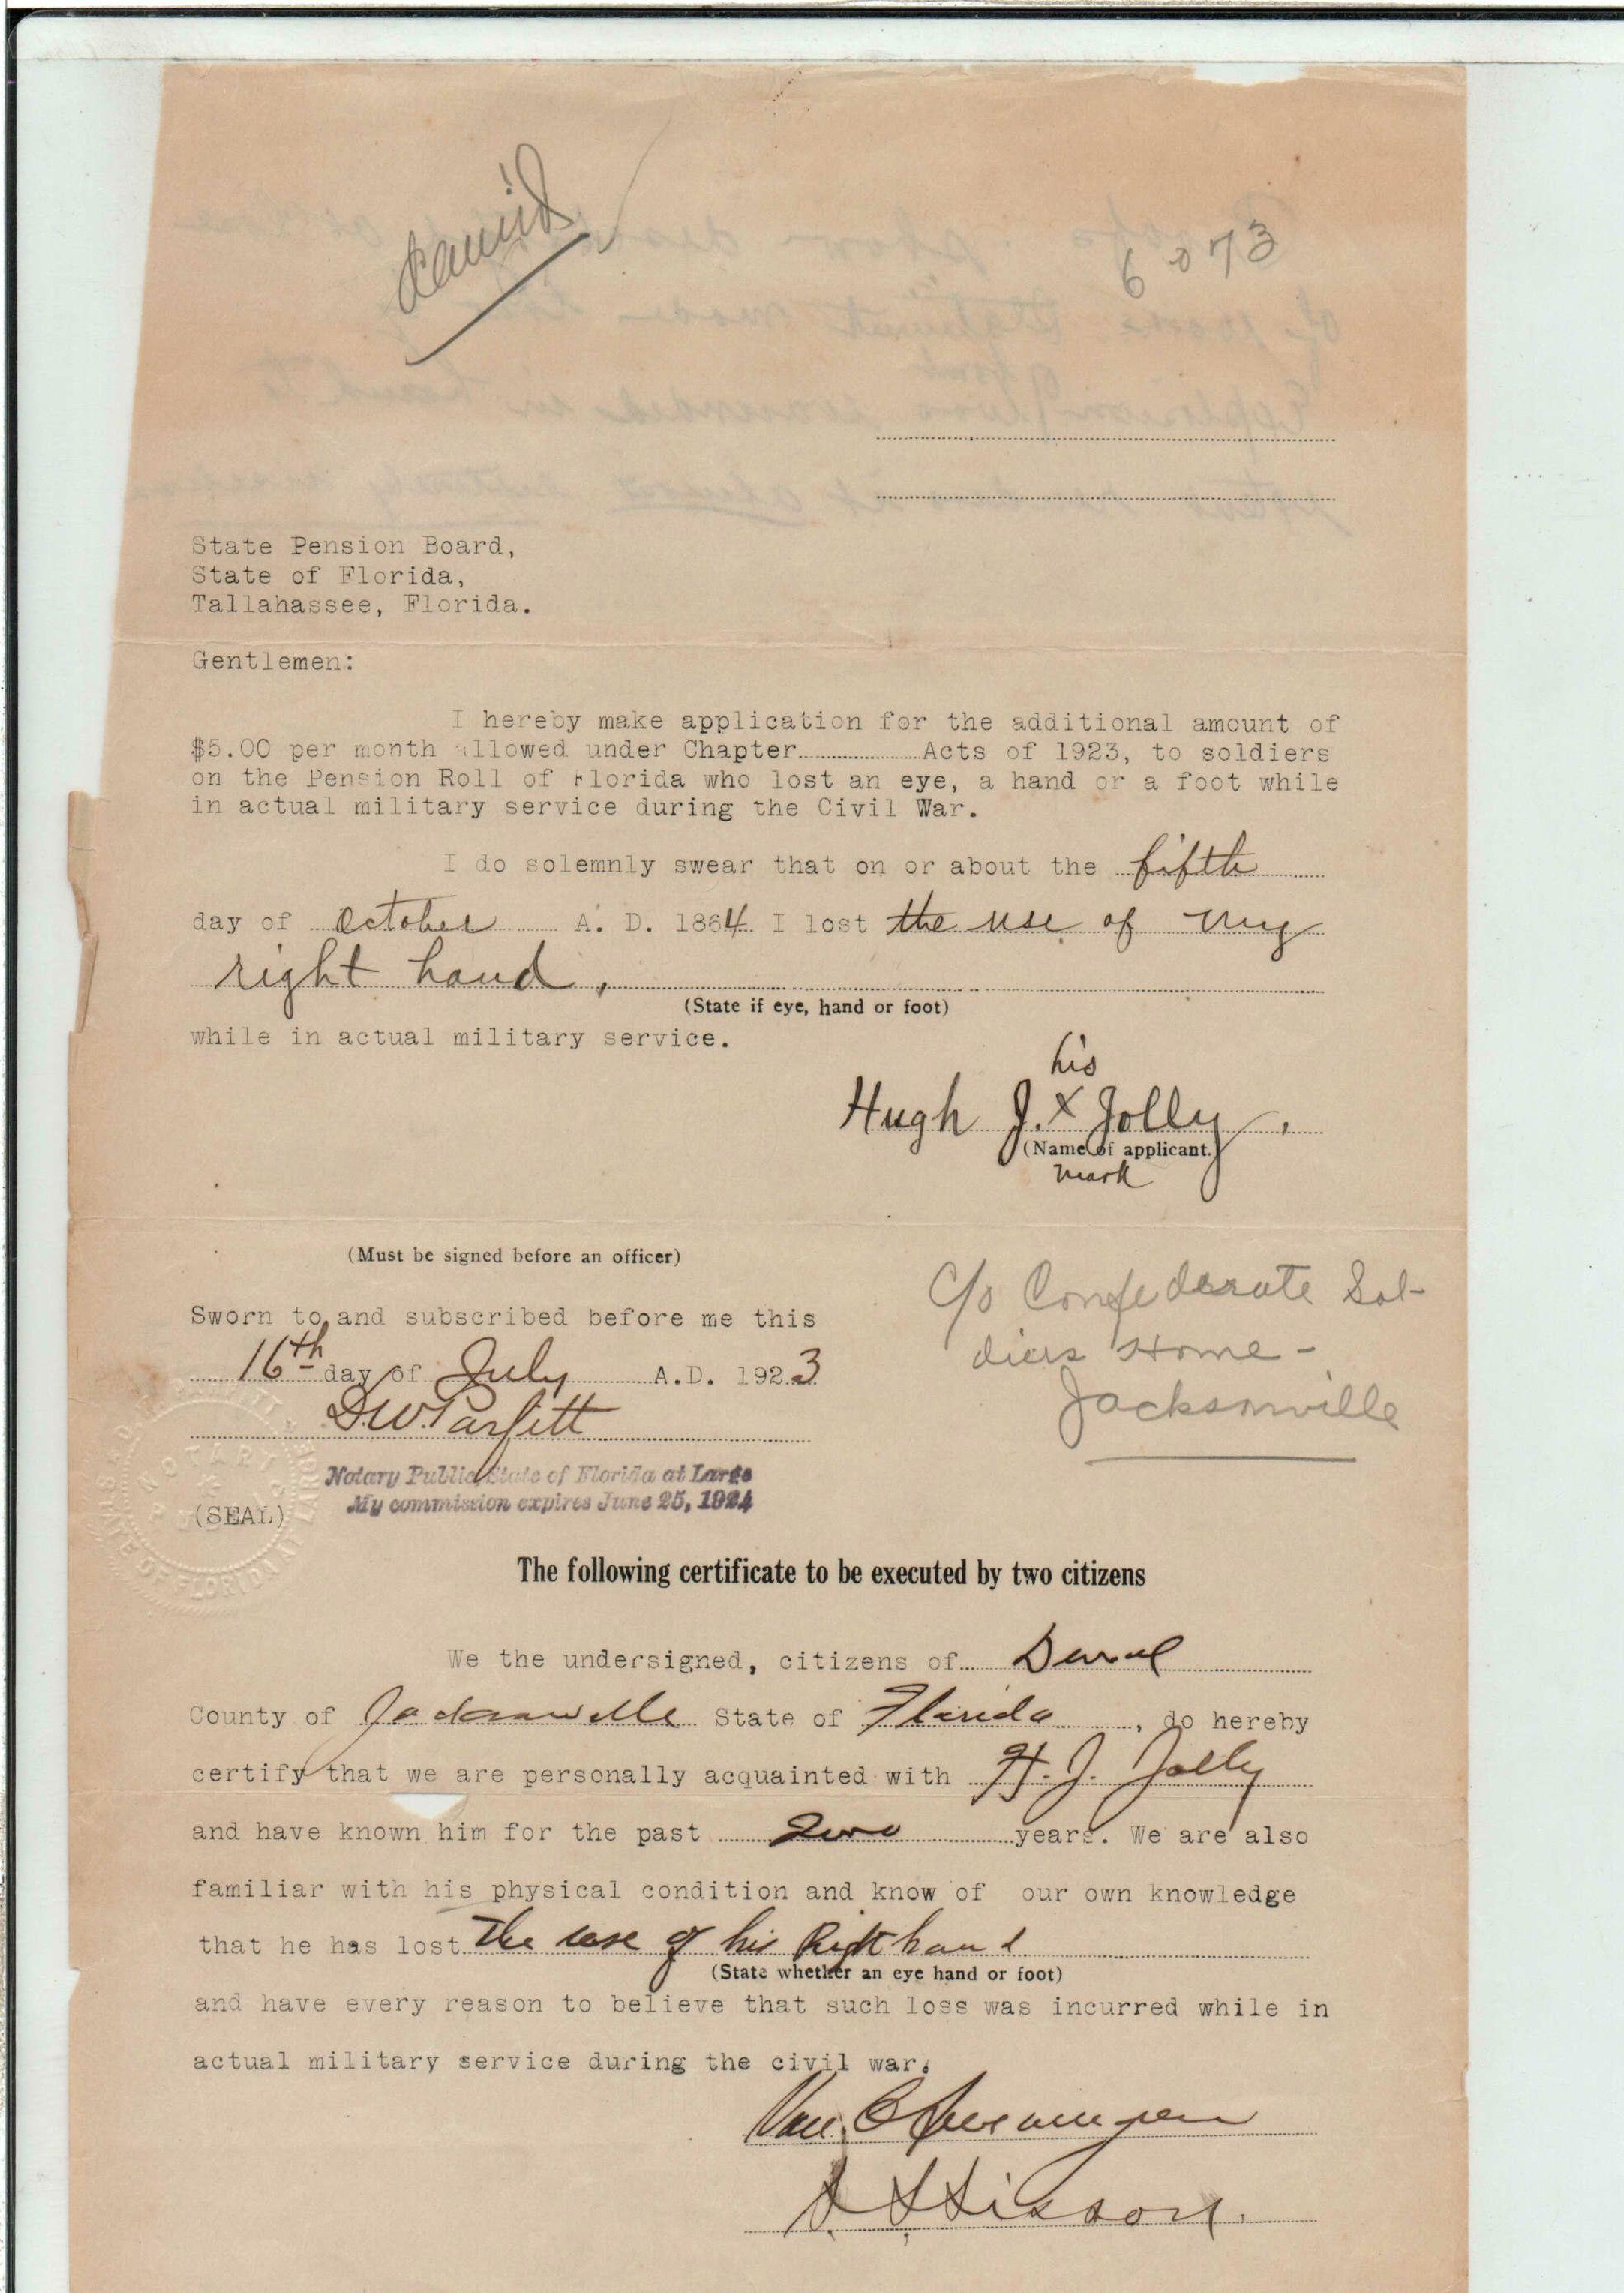 6073
State Pension Board,
State of Florida,
Tallahassee, Florida.
Gentlemen:
I hereby make application for the additional amount of
$5.00 per month allowed under Chapter.............Acts of 1923, to soldiers
on the Pension Roll of Florida who lost an eye, a hand or a foot while
in actual military service during the Civil War.
I do solemnly swear that on or about the fifth
day of October A. D. 1864 I lost the use of my
right hand,
(State if eye, hand or foot)
while in actual military service.
his
Hugh J. X Jolly,
(Name of applicant.)
mark
(Must be signed before an officer)
Sworn to and subscribed before me this
16th day of July A.D. 1923
D.W. Parfitt
Notary Public, State of Florida at Large
My commission expires June 25, 1924
(SEAL)
C/o Confederate Sol-
diers Home -
Jacksonville
The following certificate to be executed by two citizens
We the undersigned, citizens of Duval
County of Jacksonville State of Florida, do hereby
certify that we are personally acquainted with H. J. Jolly
and have known him for the past two years. We are also
familiar with his physical condition and know of our own knowledge
that he has lost the use of his Right hand
(State whether an eye hand or foot)
and have every reason to believe that such loss was incurred while in
actual military service during the civil war.
Sisson.